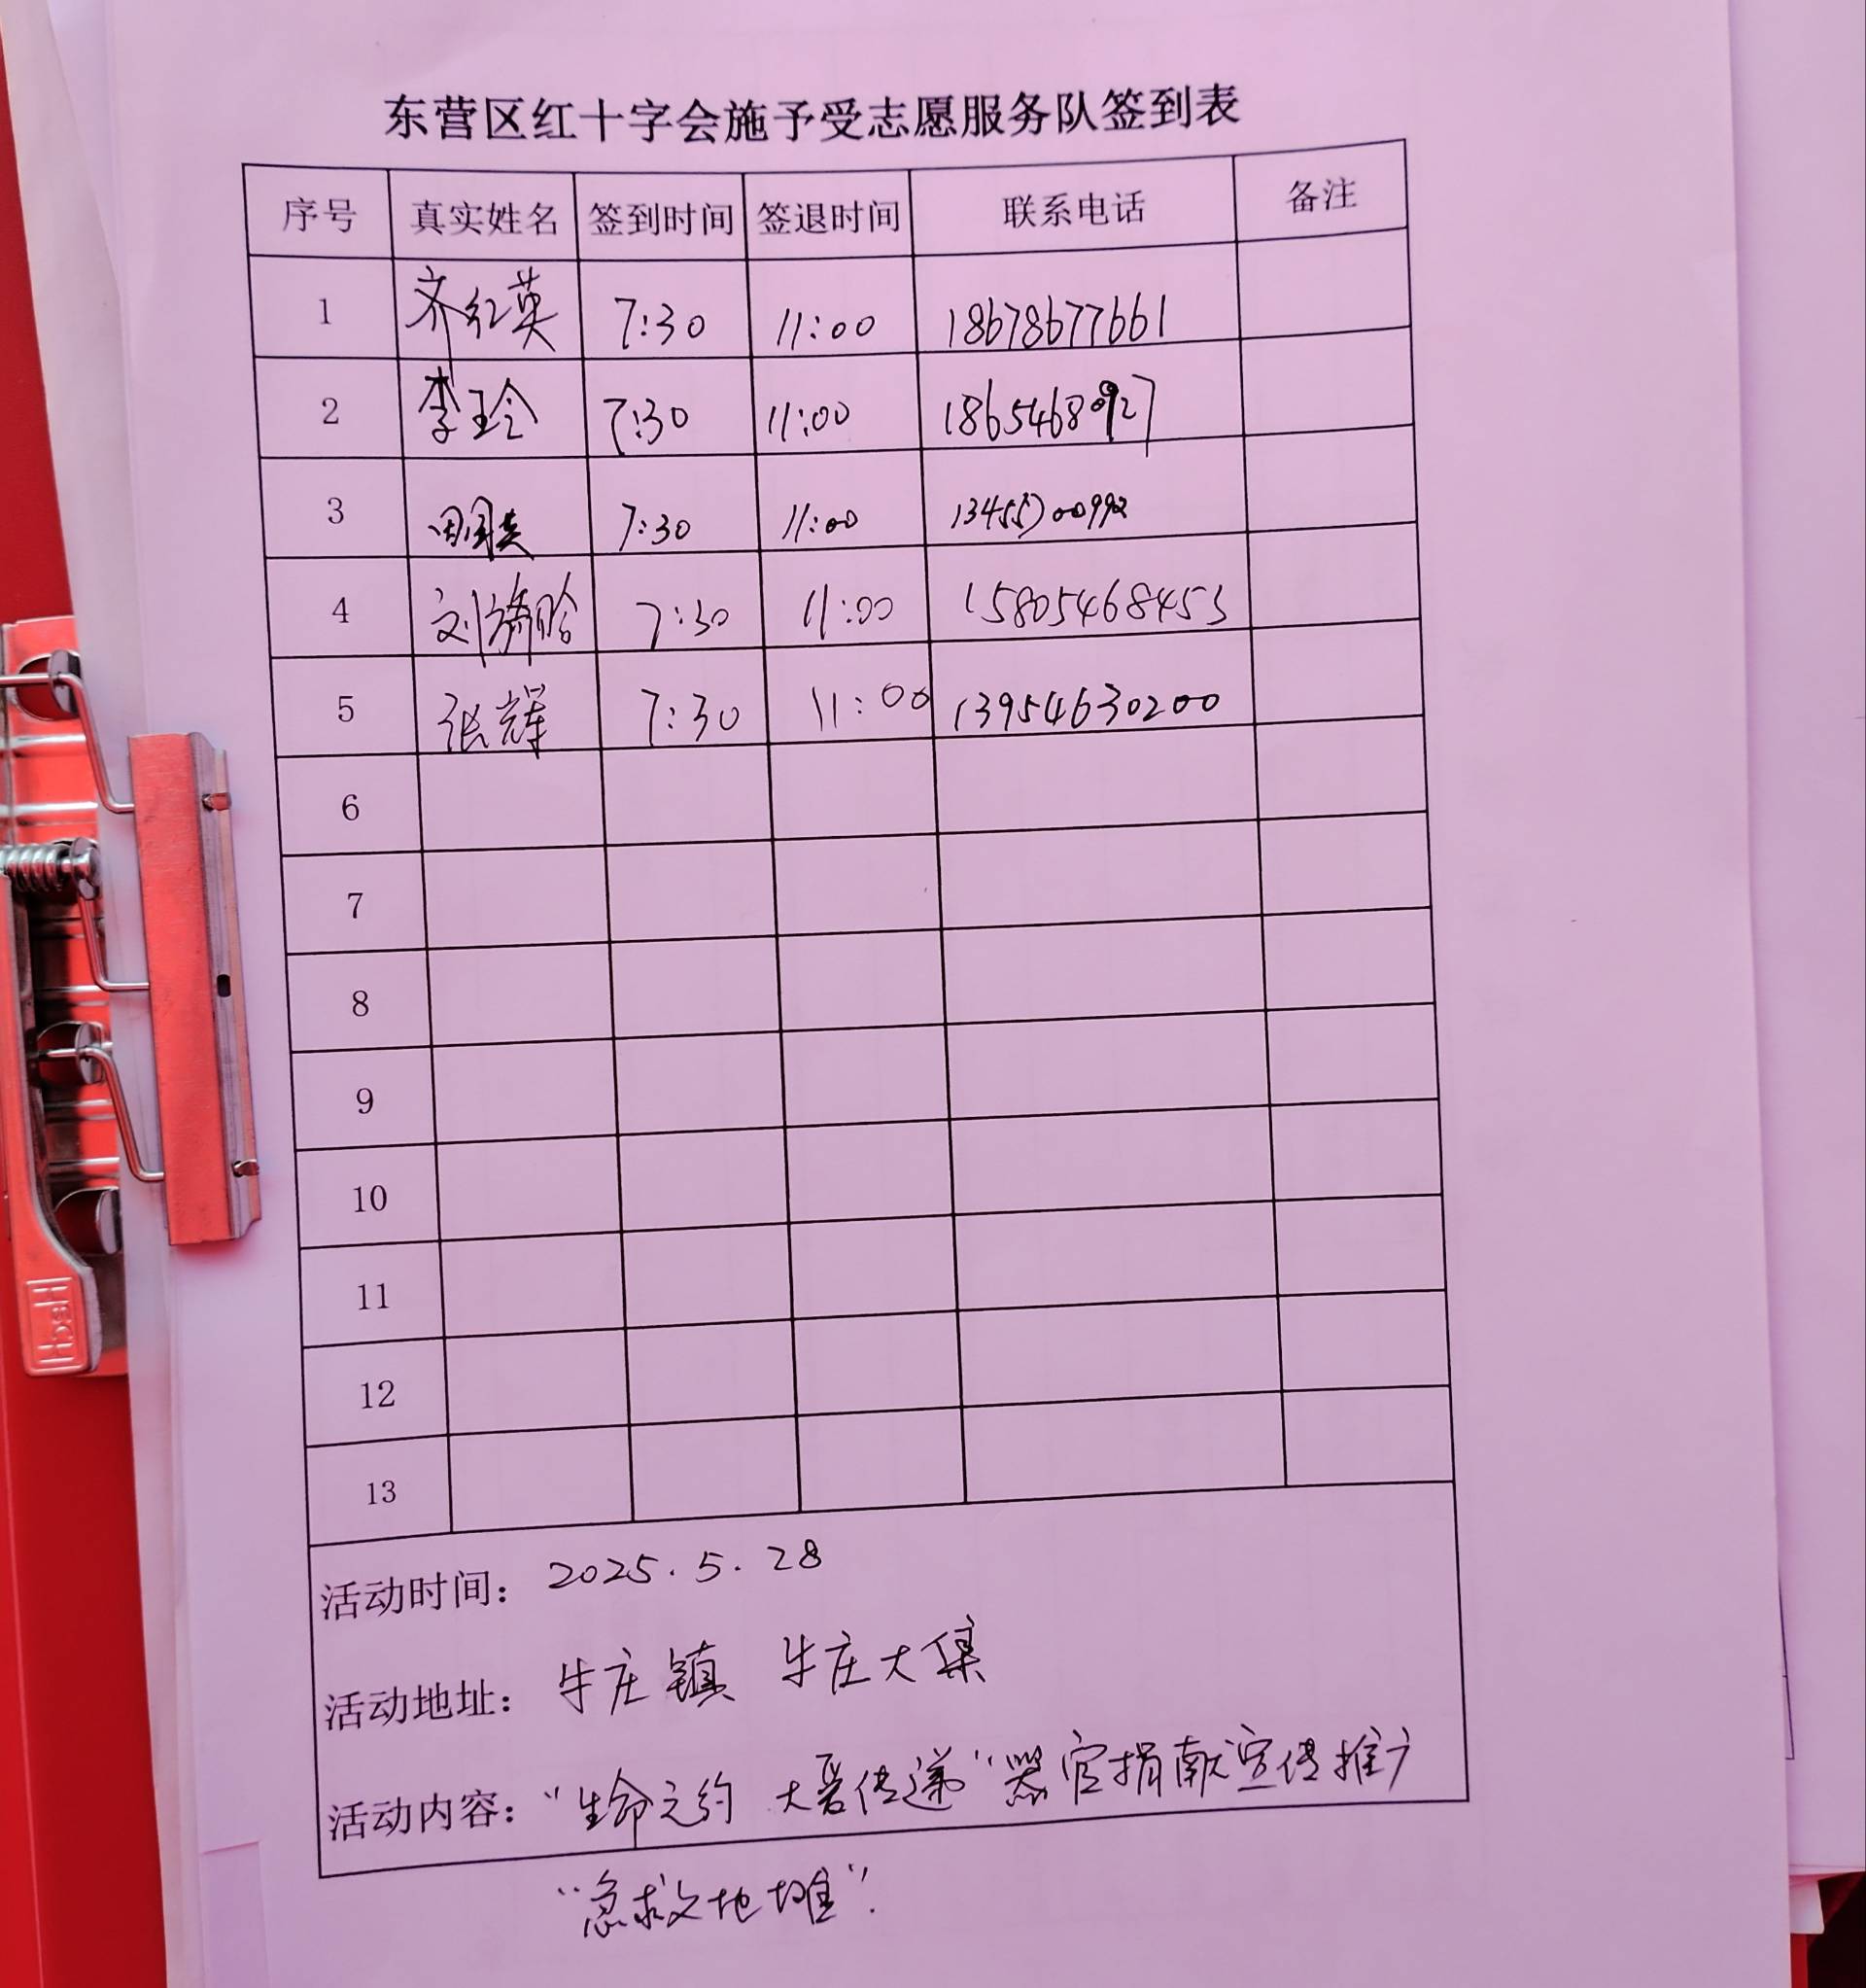 东营区红十字会施予受志愿服务队签到表
序号 真实姓名 签到时间 签退时间 联系电话 备注
1 齐红英 7:30 11:00 18678677661
2 李玲 7:30 11:00 18654680927
3 7:30 11:00
4 7:30 11:00 15805468453
5 张辉 7:30 11:00 13954630200
6
7
8
9
10
11
12
13
活动时间: 2025.5.28
活动地址: 牛庄镇 牛庄大集
活动内容: "生命之约 大爱传递"器官捐献宣传推广
"急救地摊".